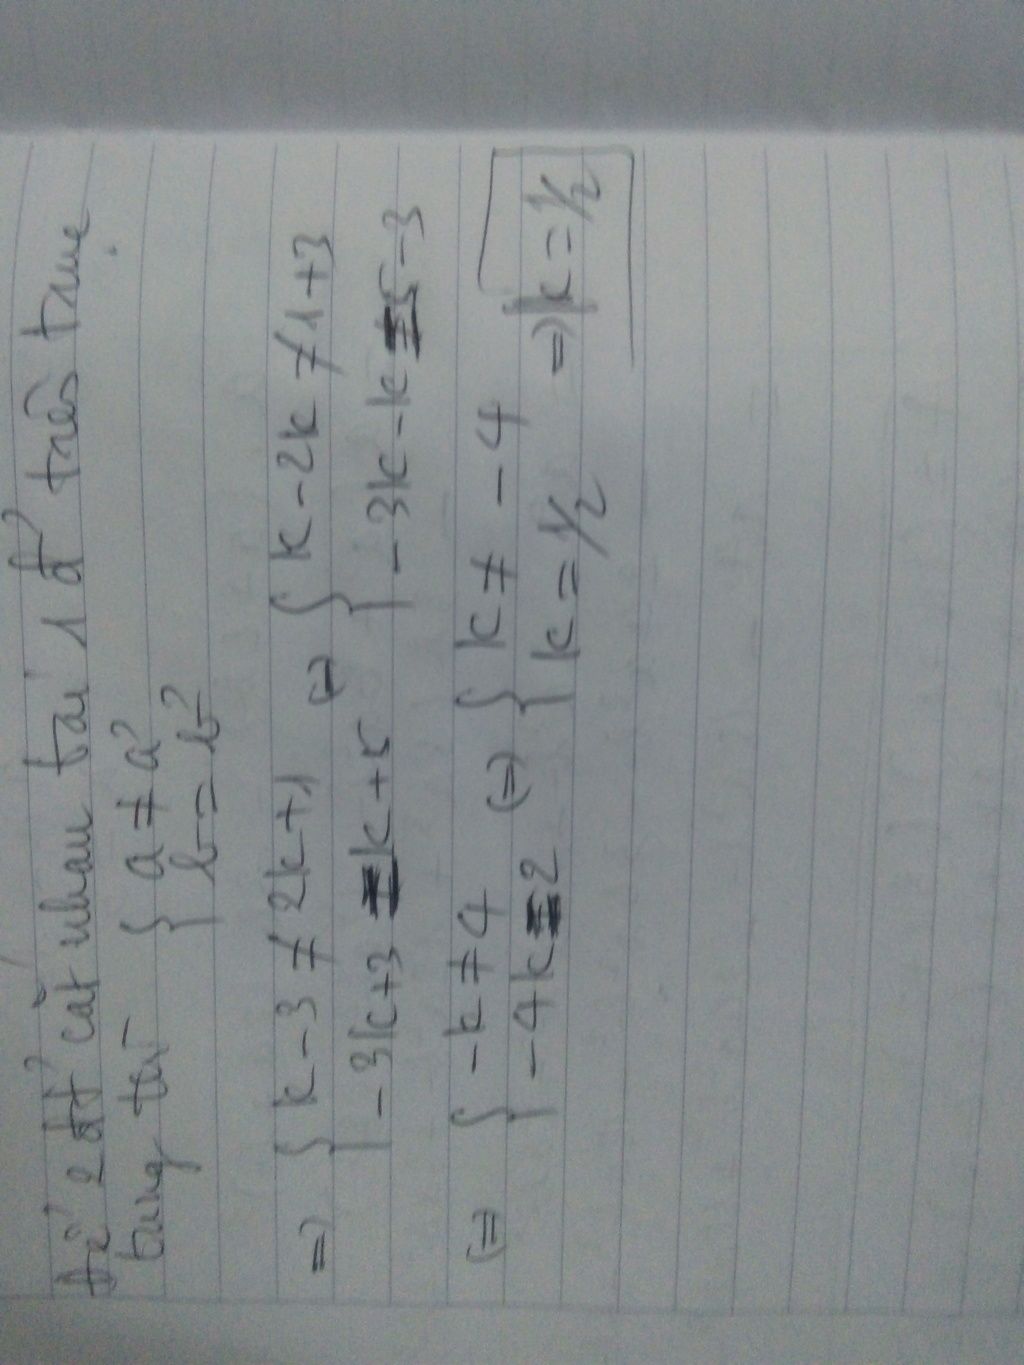 Để 2 đt' cắt nhau tại 1 đ' trên trục
tung thì { a ≠ a'
{ b = b'
=> { k - 3 ≠ 2k + 1 (=) { k - 2k ≠ 1 + 3
{ -3k + 3 = k + 5 { -3k - k = 5 - 3
(=) { -k ≠ 4 (=) { k ≠ -4
{ -4k = 2 { k = 1/2 => k = 1/2